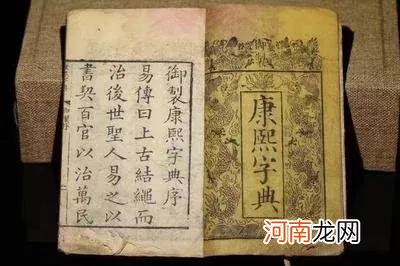 康熙字典
御製康熙字典序
易傳曰上古結繩而
治後世聖人易之以
書契百官以治萬民
河南龙网